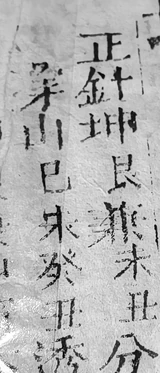 正針坤艮兼未丑分
山巳未癸丑透